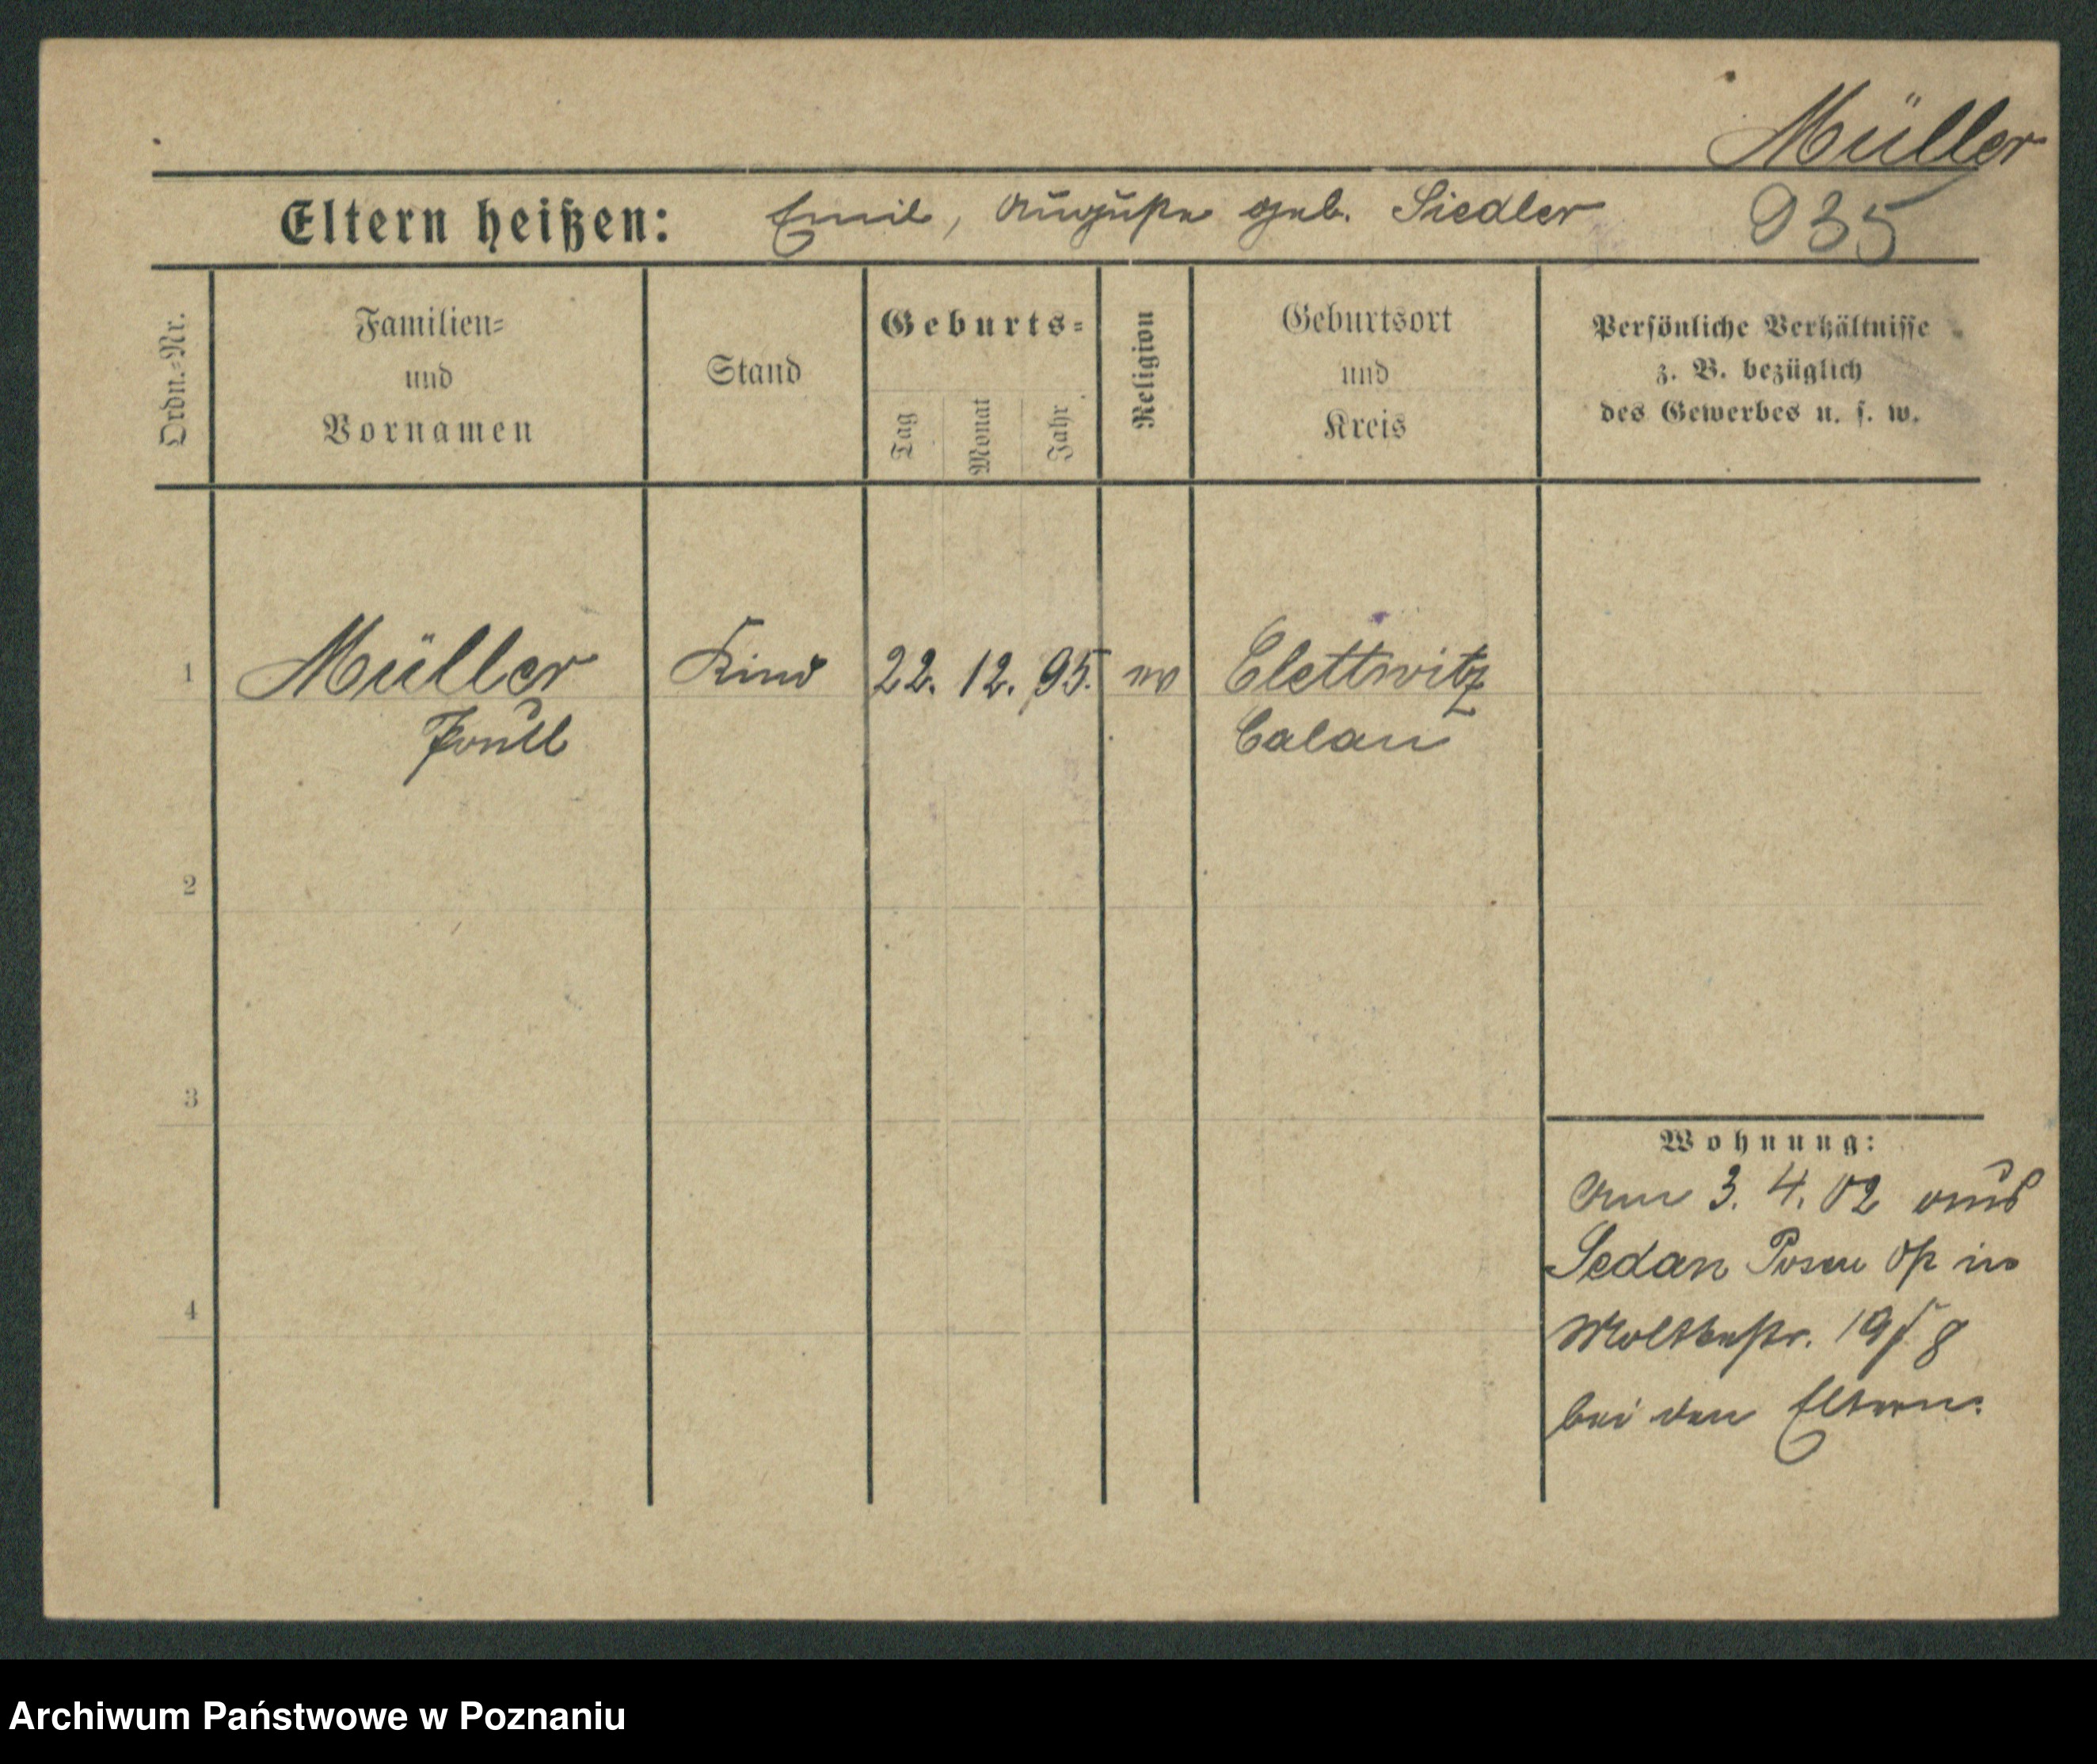 Müller
Eltern heißen: Emil, Auguste geb. Siedler 935
Ordn.=Nr.
Familien=
und
Vornamen
Stand
Geburts=
Tag
Monat
Jahr
Religion
Geburtsort
und
Kreis
Persönliche Verhältnisse
z. B. bezüglich
des Gewerbes u. s. w.
1 Müller Kind 22. 12. 95. ev Clettwitz
Paul Calau
2
3
4
Wohnung:
Am 3. 4. 02 aus
Sedan Posen in
Moltkestr. 19/8
bei den Eltern.
Archiwum Państwowe w Poznaniu